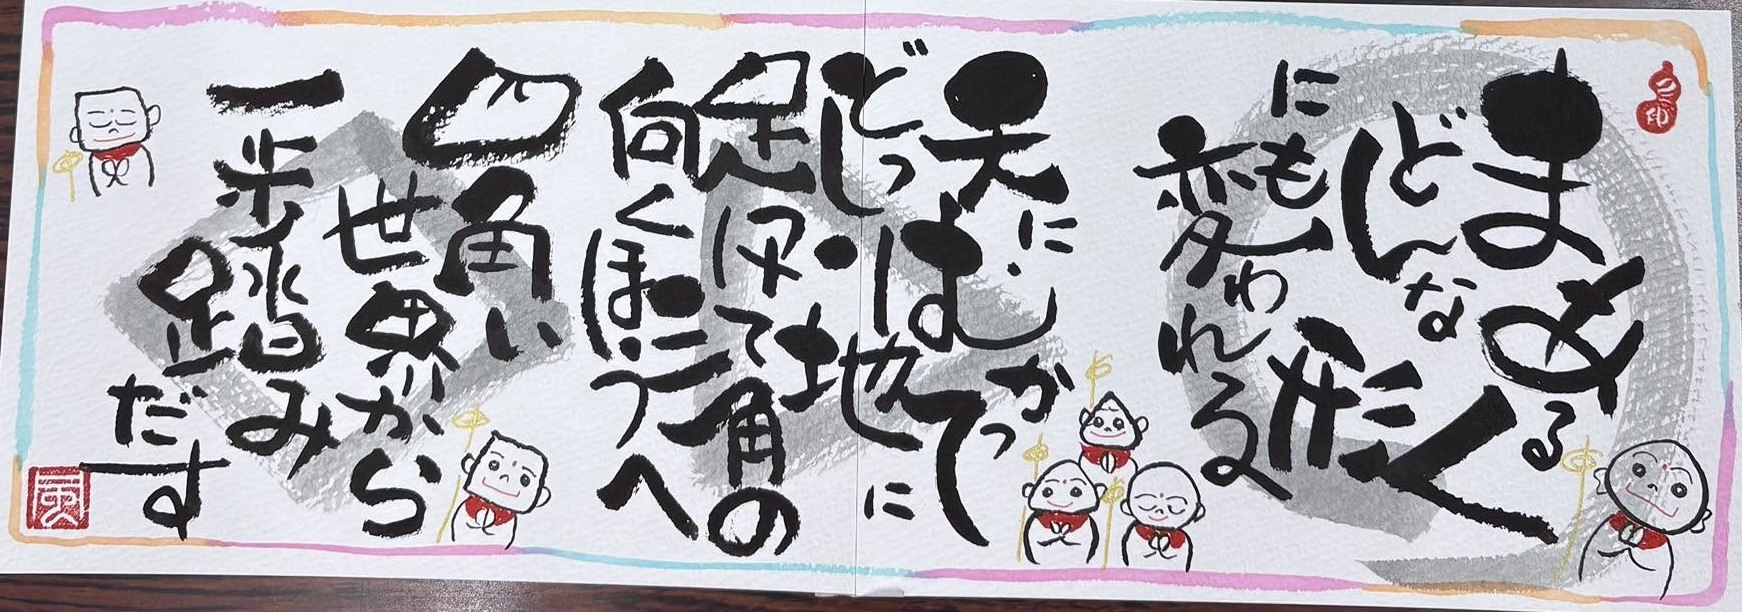 まあるく
どんな形
にも変われる
天にむかって
どっしり地に
足て三角の
向くほうへ
四角い
世界から
一歩踏み
足だす